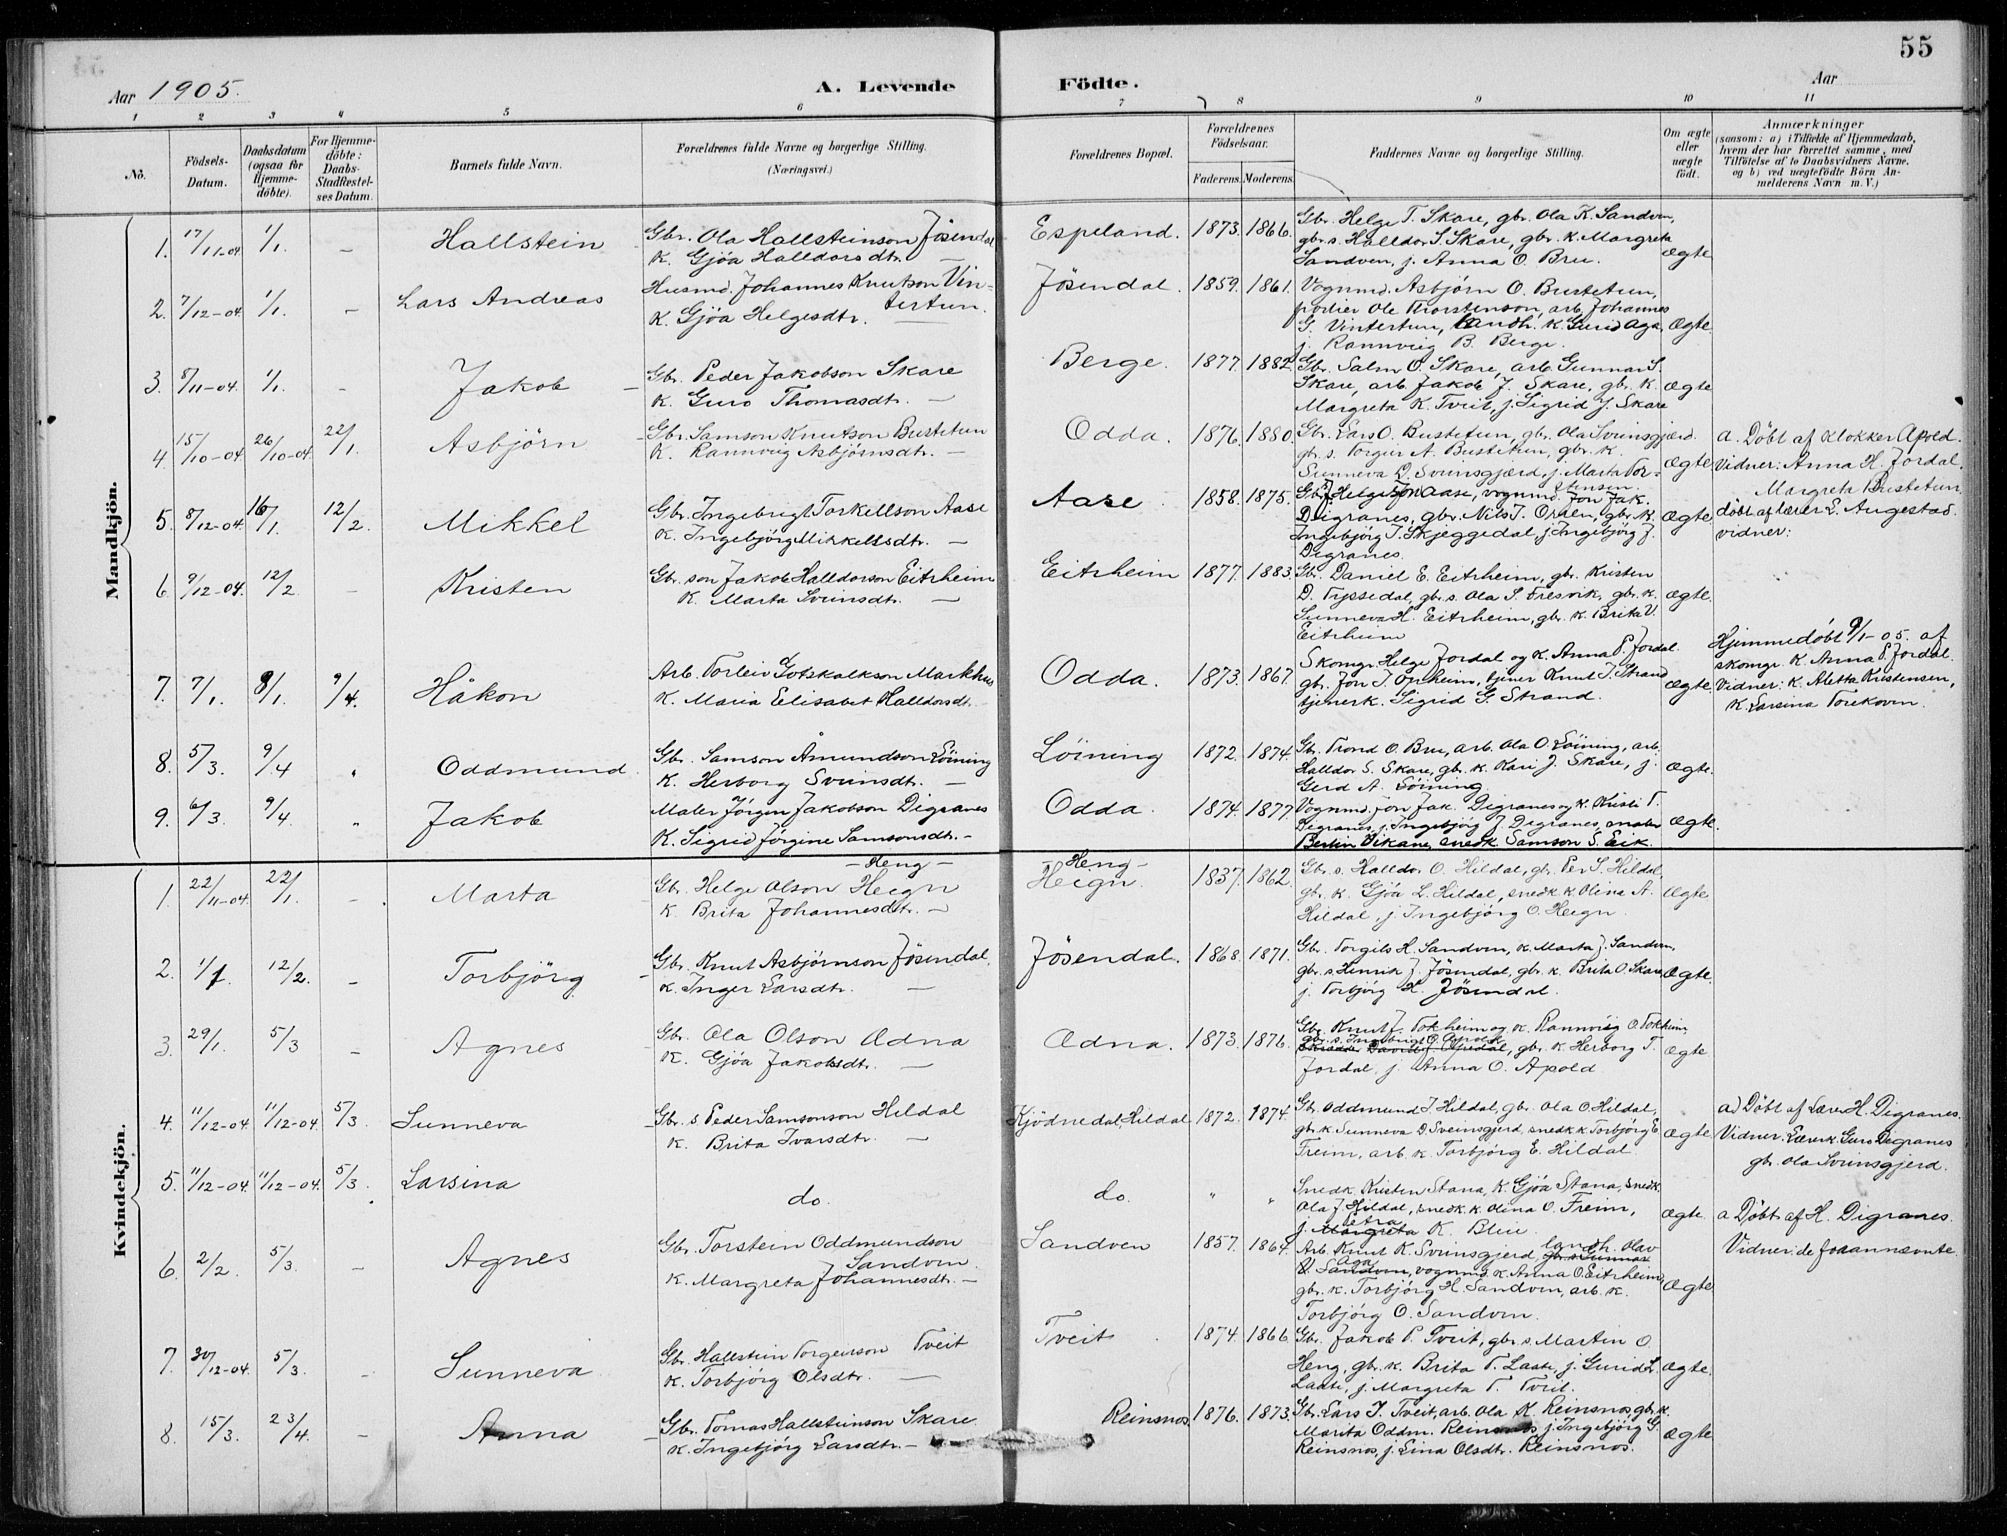 55
Aar 1905.
A. Levende Födte.
Aar
1 2 3 4 5 6 7 8 9 10 11
No.
Födsels-Datum.
Daabsdatum (ogsaa for Hjemme-döbte).
For Hjemme-döbte: Daabs-Stadfæstel-ses Datum.
Barnets fulde Navn.
Forældrenes fulde Navne og borgerlige Stilling.
(Næringsvei.)
Forældrenes Bopæl.
Forældrenes Födselsaar.
Faderens. Moderens.
Faddernes Navne og borgerlige Stilling.
Om ægte eller uægte födt.
Anmærkninger
(saasom: a) i Tilfælde af Hjemmedaab,
hvem der har forrettet samme, med
Tilföielse af to Daabsvidners Navne,
og b) ved uægtefödte Börn An-
melderens Navn m. V.)
Mandkjön.
1. 17/11-04 1/1. – Hallstein
Gbr. Ola Hallsteinson Jösendal
K. Gjöa Halldorsdtr. –
Espeland. 1873. 1866.
Gbr. Helge T. Skare, gbr. Ola K. Sandven,
gbr. s. Halldor S. Skare, gbr. k. Margreta
Sandven, j. Anna O. Bru.
ægte
2. 7/12-04. 1/1. – Lars Andreas
Husmd. Johannes Knutson Vin-
tertun.
K. Gjöa Helgesdtr. –
Jösendal. 1859. 1861.
Vognmd. Asbjörn O. Bustetun,
portier Ole Thorstenson, arb. Johannes
G. Vintertun, landh. k. Gurid Aga,
j. Rannveig B. Berge.
Ægte.
3. 8/11-04. 1/1. – Jakob
Gbr. Peder Jakobson Skare
K. Guro Thomasdtr. –
Berge. 1877. 1882.
Gbr. Salm. O. Skare, arb. Gunnar S.
Skare, arb. Jakob J. Skare, gbr. k.
Margreta K. Tveit, j. Sigrid J. Skare
ægte
4. 15/10-04 26/10-04 22/1. Asbjörn
Gbr. Samson Knutson Bustetun
K. Rannveig Asbjörnsdtr. –
Odda. 1876. 1880.
Gbr. Lars O. Bustetun, gbr. Ola Sveinsgjærd.
gbr. s. Torgeir A. Bustetun, gbr. k.
Sunneva D. Sveinsgjærd, j. Marta Tor-
stensen.
ægte
a. Döbt af klokker Apold.
Vidner: Anna H. Jordal.
Margreta Bustetun
5. 8/12-04. 16/1. 12/2. Mikkel
Gbr. Ingebrigt Torkellson Aase
K. Ingebjörg Mikkelsdtr. –
Aase. 1858. 1875.
Gbr. Helge Aase, vognmd. Jon Jak.
Digranes, gbr. Nils T. Ormen, gbr. k.
Ingebjörg T. Skjeggedal, j. Ingebjörg J.
Digranes
ægte
döbt af lærer L. Augestad.
vidner:
6. 9/12-04. 12/2. – Kristen
Gbr. son Jakob Halldorson Eitrheim
K. Marta Sveinsdtr. –
Eitrheim 1877. 1883.
Gbr. Daniel E. Eitrheim, gbr. Kristen
D. Tyssedal, gbr. s. Ola S. Fresvik, gbr. k.
Sunneva H. Eitrheim, gbr. k. Brita V.
Eitrheim
ægte.
7. 7/1. 8/1. 9/4. Håkon
Arb. Torleiv Gotskalkson Markhus
K. Maria Elisabet Halldorsdt.
Odda. 1873. 1867.
Skomgr. Helge Jordal og k. Anna P. Jordal.
gbr. Jon T. Opheim, tjener Knut J. Strand
tjenerk. Sigrid G. Strand.
ægte.
Hjemmedöbt 8/1-05. af
skomgr. K. Anna P. Jordal.
Vidner: K. Aletta Kristensen,
K. Larsina Torekoven.
8. 5/3. 9/4 Oddmund.
Gbr. Samson Åmundson Löining
K. Herborg Sveinsdt. –
Löining 1872. 1874.
Gbr. Trond O. Bru, arb. Ola O. Löining, arb.
Halldor S. Skare, gbr. k. Kari J. Skare, j.
Gerd A. Löining
ægte.
9. 6/3. 9/4. Jakob
Maler Jörgen Jakobson Digranes
K. Sigrid Jörgine Samsonsdt. –
Odda. 1874. 1877.
Vognmd. Jon Jak. Digranes og k. Kristi T.
Digranes, j. Ingebjörg J. Digranes, maler
Bertin Vikane, snedk. Samson S. Eik.
ægte.
Kvindekjön.
1. 22/11-04. 22/1. – Marta
– Heng –
Gbr. Helge Olson Heign
K. Brita Johannesdtr. –
Heng –
Heign. 1837. 1862.
Gbr. s. Halldor O. Hildal, gbr. Per S. Hildal,
gbr. k. Gjöa L. Hildal, snedk. k. Olina A.
Hildal, j. Ingebjörg O. Heign.
ægte
2. 1/1. 12/2. – Torbjörg
Gbr. Knut Asbjörnson Jösendal.
K. Inger Larsdtr. –
Jösendal. 1868. 1871.
Gbr. Torgils H. Sandven, k. Marta J. Sandven,
gbr. s. Henrik J. Jösendal, gbr. k. Brita O. Skare,
j. Torbjörg K. Jösendal.
Ægte.
3. 29/1. 5/3 – Agnes
Gbr. Ola Olson Ædna
K. Gjöa Jakobsdtr. –
Ædna. 1873. 1876.
Gbr. Knut J. Tokheim og k. Rannveig O. Tokheim,
gbr. s. Ingebrigt O. Apold,
gbr. k. Herborg T.
Jordal, j. Anna O. Apold
ægte
4. 11/12-04 11/12-04. 5/3. Sunneva
Gbr. s. Peder Samsonson Hildal
K. Brita Ivarsdtr. –
Kjödnedal, Hildal 1872. 1874.
Gbr. Oddmund T. Hildal, gbr. Ola O. Hildal,
gbr. k. Sunneva D. Sveinsgjerd, snedk. k. Torbjörg E.
Freim, arb. k. Torbjörg E. Hildal.
ægte.
a) Döbt af Lærer H. Digranes.
Vidner: Lærerk. Guro Digranes
gbr. Ola Sveinsgjerd.
5. 11/12-04. 11/12-04. 5/3. Larsina
do.
do. " "
Snedk. Kristen Stana, k. Gjöa Stana, snedk.
Ola J. Hildal, snedk. k. Olina O. Freim,
j. Margreta K. Bleie
ægte.
a Döbt af H. Digranes.
Vidner: de forannævnte.
6. 2/2. 5/3. – Agnes
Gbr. Torstein Oddmundson
Sandven.
K. Margreta Johannesdt. –
Sandven 1857. 1864.
Arb. Knut K. Sveinsgjerd, landh. Olav
Aga
V. Sandven, vognmd. k. Anna O. Eitrheim,
gbr. k. Torbjörg H. Sandven, arb. k.
Torbjörg O. Sandven.
ægte.
7. 30/12-04. 5/3. – Sunneva
Gbr. Hallstein Torgeirson Tveit
K. Torbjörg Olsdtr. –
Tveit 1874. 1866
Gbr. Jakob P. Tveit, gbr. s. Martin O.
Heng, gbr. k. Brita T. Laate, j. Gurid L.
Laate, j. Margreta T. Tveit.
ægte.
8. 15/3. 23/4. – Anna
Gbr. Tomas Hallsteinson Skare.
K. Ingebjörg Larsdtr. –
Reinsnos 1876. 1873.
Gbr. Lars J. Tveit, arb. Ola K. Reinsnos, gbr. k.
Marita Oddm. Reinsnos, j. Ingebjörg G.
Reinsnos, j. Lina Olsdtr. Reinsnos.
ægte